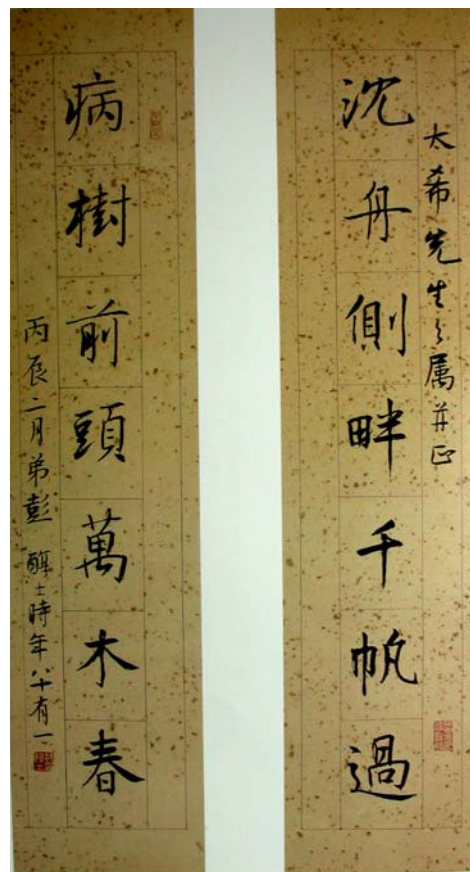 太希先生之属并正
沈舟側畔千帆過
病樹前頭萬木春
丙辰二月弟彭醇士時年八十有一